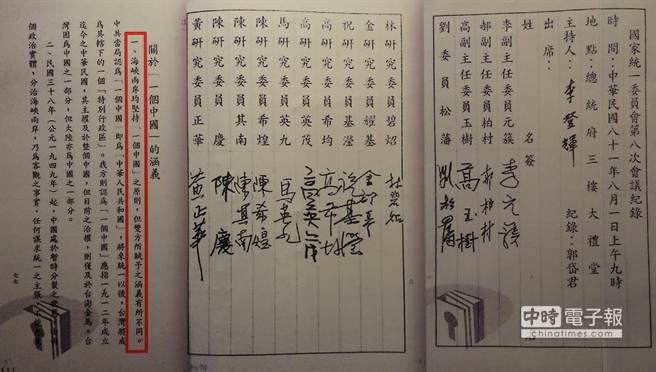 國家統一委員會第八次會議紀錄
時間：中華民國八十一年八月一日上午九時
地點：總統府三樓大禮堂
主持人：李登輝　紀錄：郭岱君
出席：
姓名　簽
李副主任委員元簇　李元簇
郝副主任委員柏村　郝柏村
高副主任委員玉樹　高玉樹
劉委員松藩　劉松藩
林研究委員碧炤　林碧炤
金研究委員耀基
祝研究委員基瀅　祝基瀅
高研究委員希均　高希均
高研究委員英茂　高英茂
馬研究委員英九　馬英九
陳研究委員希煌　陳希煌
陳研究委員其南　陳其南
陳研究委員慶　陳慶
黃研究委員正華　黃正華
關於「一個中國」的涵義
一、海峽兩岸均堅持「一個中國」之原則，但雙方所賦予之涵義有所不同。
中共當局認為「一個中國」即為「中華人民共和國」，將來統一以後，台灣將成
為其轄下的一個「特別行政區」。我方則認為「一個中國」應指一九一二年成立
迄今之中華民國，其主權及於整個中國，但目前之治權，則僅及於台澎金馬。台
灣固為中國之一部分，但大陸亦為中國之一部分。
二、民國三十八年（公元一九四九年）起，中國處於暫時分裂之
個政治實體，分治海峽兩岸，乃為客觀之事實，任何謀求統一之主張
七七
中時電子報
chinatimes.com